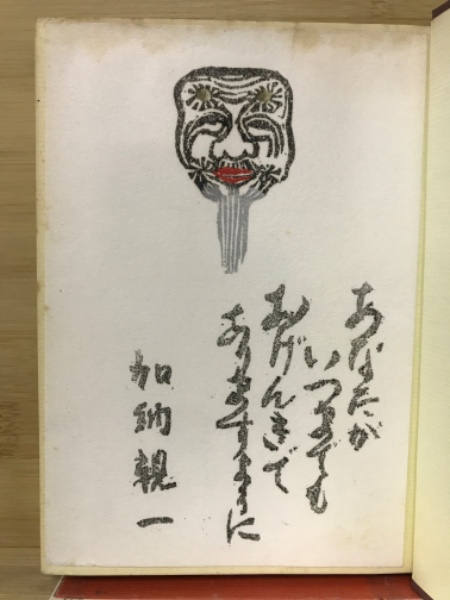 あなたが
いつまでも
おげんきで
ありますように
加納親一